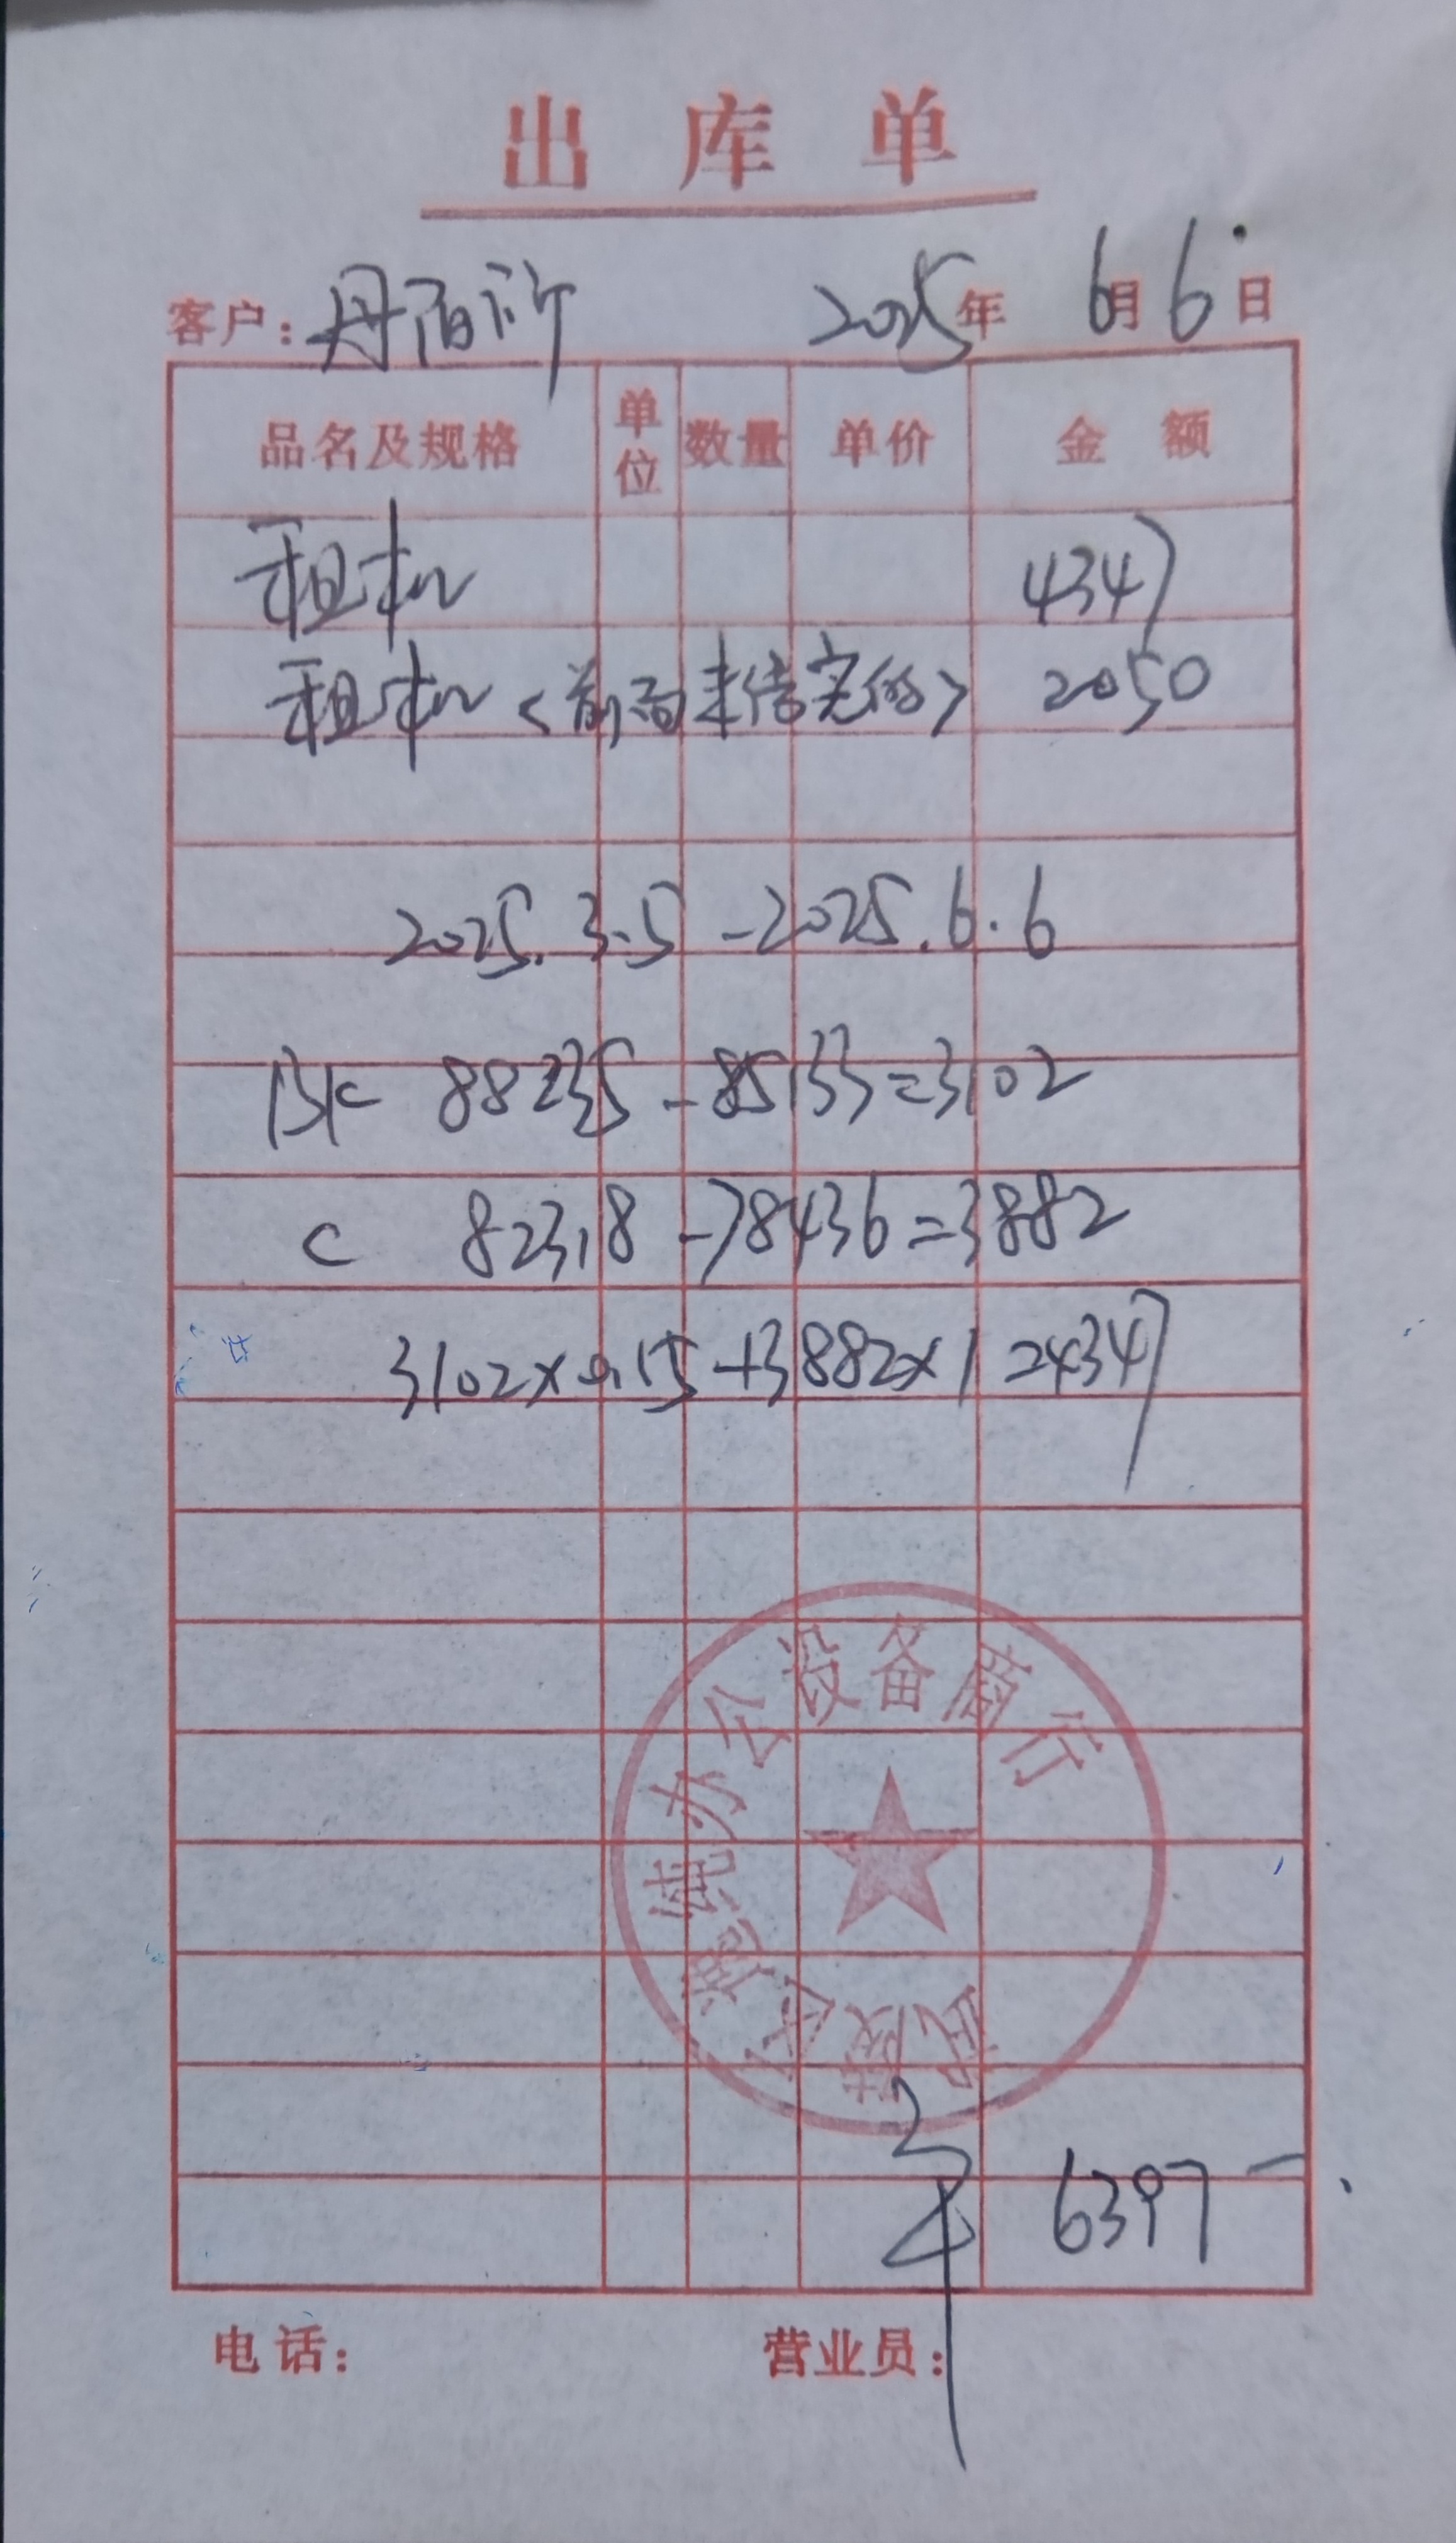 出库单
客户：丹 所 2025年 6月 6日
品名及规格 单位 数量 单价 金额
租机 4347
租机<前面未结完的> 2050
2025.3.5-2025.6.6
BK 88235-85133=3102
C 82318-78436=3882
3102×0.15+3882×1=4347
办公设备商行
6397
电话： 营业员：